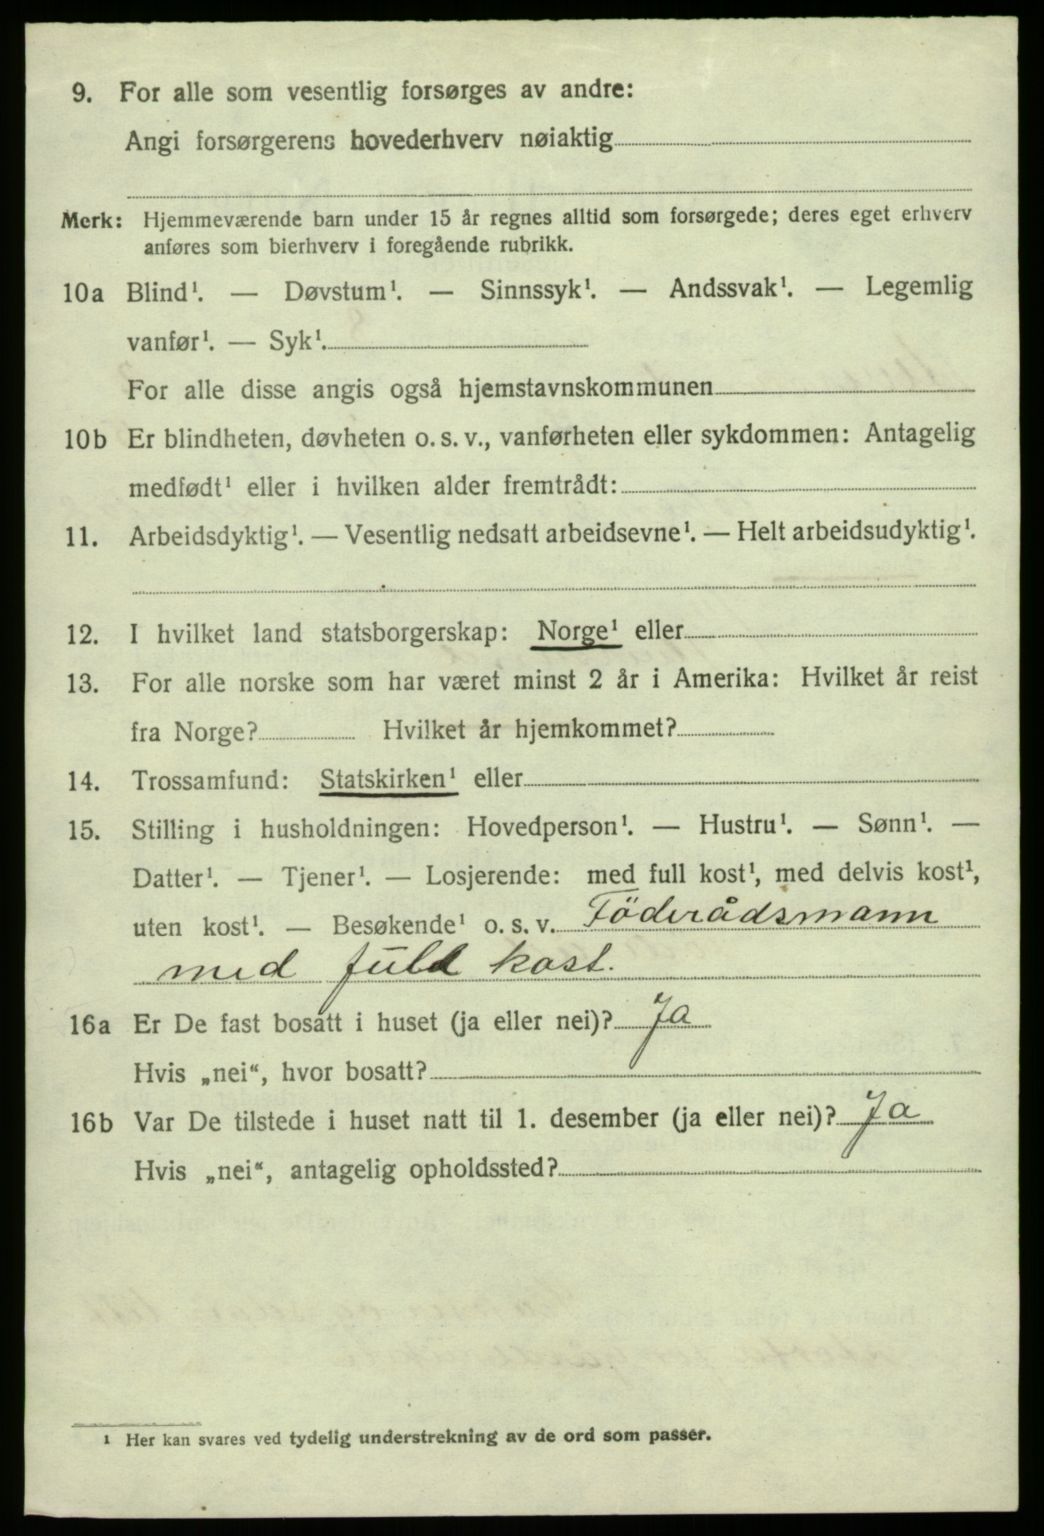 9. For alle som vesentlig forsørges av andre:
Angi forsørgerens hovederhverv nøiaktig
Merk: Hjemmeværende barn under 15 år regnes alltid som forsørgede; deres eget erhverv
anføres som bierhverv i foregående rubrikk.
10a Blind¹. — Døvstum¹. — Sinnssyk¹. — Andssvak¹. — Legemlig
vanfør¹. — Syk¹.
For alle disse angis også hjemstavnskommunen
10b Er blindheten, døvheten o. s. v., vanførheten eller sykdommen: Antagelig
medfødt¹ eller i hvilken alder fremtrådt:
11. Arbeidsdyktig¹. — Vesentlig nedsatt arbeidsevne¹. — Helt arbeidsudyktig¹.
12. I hvilket land statsborgerskap: Norge¹ eller
13. For alle norske som har været minst 2 år i Amerika: Hvilket år reist
fra Norge? Hvilket år hjemkommet?
14. Trossamfund: Statskirken¹ eller
15. Stilling i husholdningen: Hovedperson¹. — Hustru¹. — Sønn¹. —
Datter¹. — Tjener¹. — Losjerende: med full kost¹, med delvis kost¹,
uten kost¹. — Besøkende¹ o. s. v. Föderådsmann
med fuld kost.
16a Er De fast bosatt i huset (ja eller nei)? Ja
Hvis „nei“, hvor bosatt?
16b Var De tilstede i huset natt til 1. desember (ja eller nei)? Ja
Hvis „nei“, antagelig opholdssted?
¹ Her kan svares ved tydelig understrekning av de ord som passer.